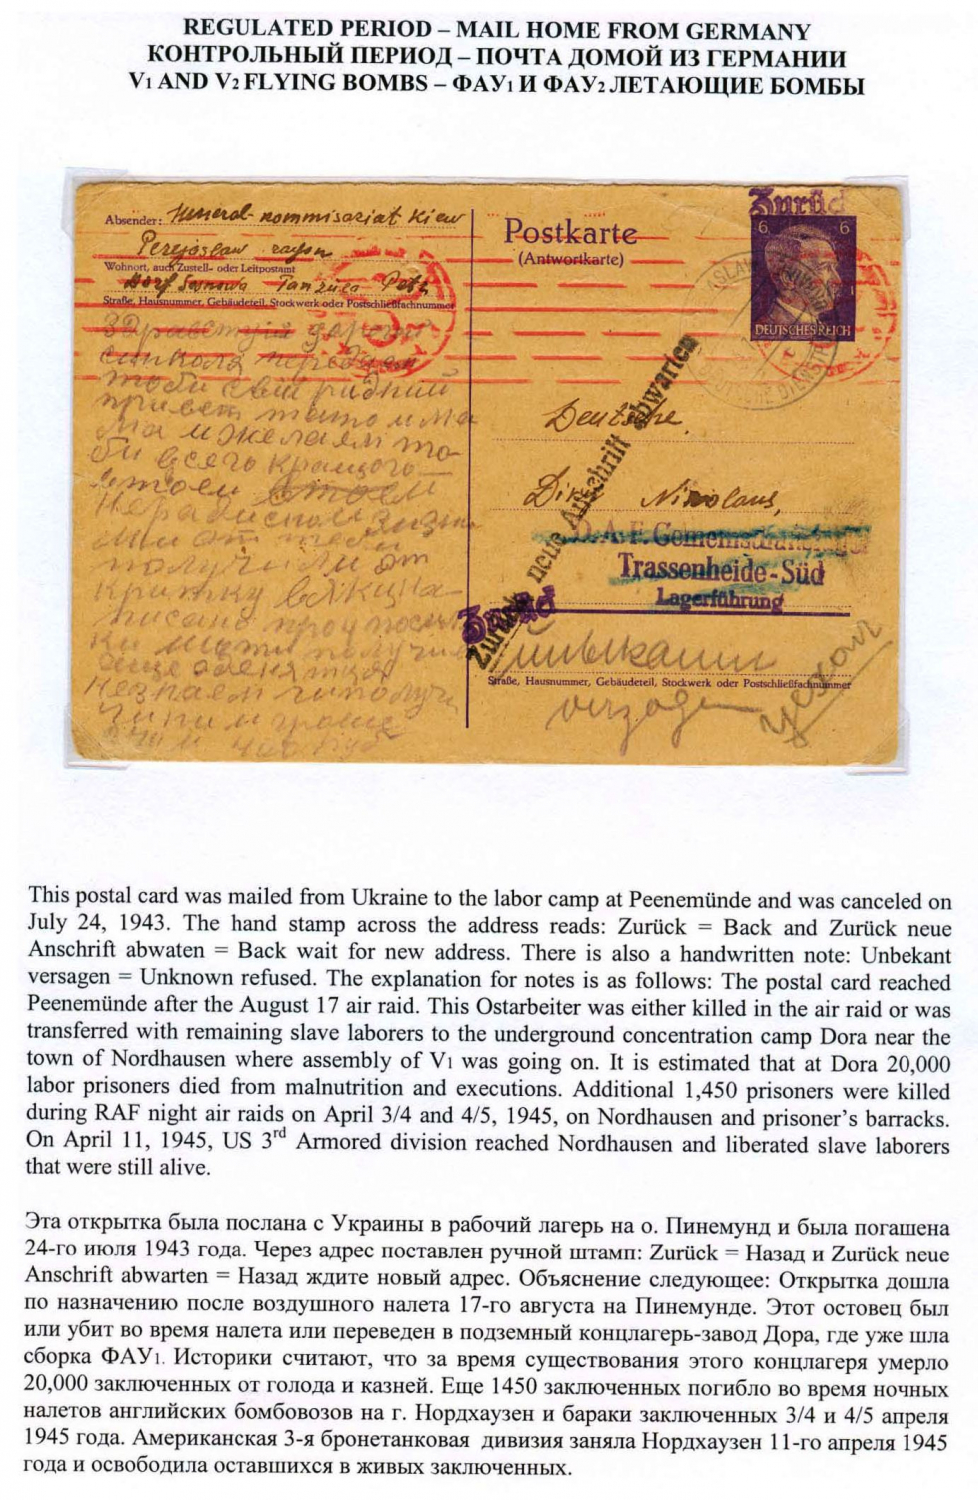 REGULATED PERIOD – MAIL HOME FROM GERMANY
КОНТРОЛЬНЫЙ ПЕРИОД – ПОЧТА ДОМОЙ ИЗ ГЕРМАНИИ
V1 AND V2 FLYING BOMBS – ФАУ1 И ФАУ2 ЛЕТАЮЩИЕ БОМБЫ
Absender: General-kommisariat Kiew
Perejaslaw rayon
Wohnort, auch Zustell- oder Leitpostamt
Dorf
Straße, Hausnummer, Gebäudeteil, Stockwerk oder Postschließfachnummer
Здравствуй
привет тато и ма
ма и желаем то
би всего
получили от
Postkarte
(Antwortkarte)
Zurück
6 6
DEUTSCHES REICH
Deutsche,
Nikolaus,
D.A.F. Gemeinschaftslager
Trassenheide-Süd
Lagerführung
Zurück
Zurück neue Anschrift abwarten
Unbekannt
Straße, Hausnummer, Gebäudeteil, Stockwerk oder Postschließfachnummer
verzogen
This postal card was mailed from Ukraine to the labor camp at Peenemünde and was canceled on
July 24, 1943. The hand stamp across the address reads: Zurück = Back and Zurück neue
Anschrift abwaten = Back wait for new address. There is also a handwritten note: Unbekant
versagen = Unknown refused. The explanation for notes is as follows: The postal card reached
Peenemünde after the August 17 air raid. This Ostarbeiter was either killed in the air raid or was
transferred with remaining slave laborers to the underground concentration camp Dora near the
town of Nordhausen where assembly of V1 was going on. It is estimated that at Dora 20,000
labor prisoners died from malnutrition and executions. Additional 1,450 prisoners were killed
during RAF night air raids on April 3/4 and 4/5, 1945, on Nordhausen and prisoner's barracks.
On April 11, 1945, US 3rd Armored division reached Nordhausen and liberated slave laborers
that were still alive.
Эта открытка была послана с Украины в рабочий лагерь на о. Пинемунд и была погашена
24-го июля 1943 года. Через адрес поставлен ручной штамп: Zurück = Назад и Zurück neue
Anschrift abwarten = Назад ждите новый адрес. Объяснение следующее: Открытка дошла
по назначению после воздушного налета 17-го августа на Пинемунде. Этот остовец был
или убит во время налета или переведен в подземный концлагерь-завод Дора, где уже шла
сборка ФАУ1. Историки считают, что за время существования этого концлагеря умерло
20,000 заключенных от голода и казней. Еще 1450 заключенных погибло во время ночных
налетов английских бомбовозов на г. Нордхаузен и бараки заключенных 3/4 и 4/5 апреля
1945 года. Американская 3-я бронетанковая дивизия заняла Нордхаузен 11-го апреля 1945
года и освободила оставшихся в живых заключенных.